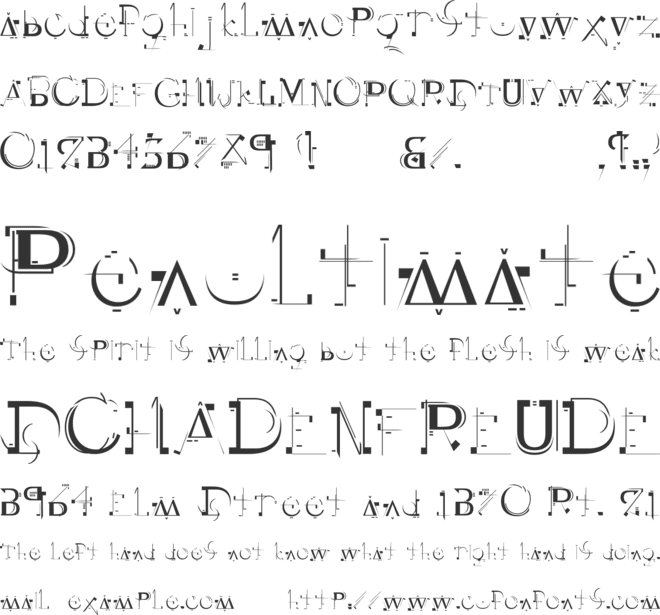 abcdefghijklmnopqrstuvwxyz
ABCDEFGHIJKLMNOPQRSTUVWXYZ
0123456789 &/. ,?:;
Penultimate
The spirit is willing but the flesh is weak
SCHADENFREUDE
3964 Elm Street and 1370 Rt. 21
The left hand does not know what the right hand is doing.
mail example.com http://www.cufonfonts.com